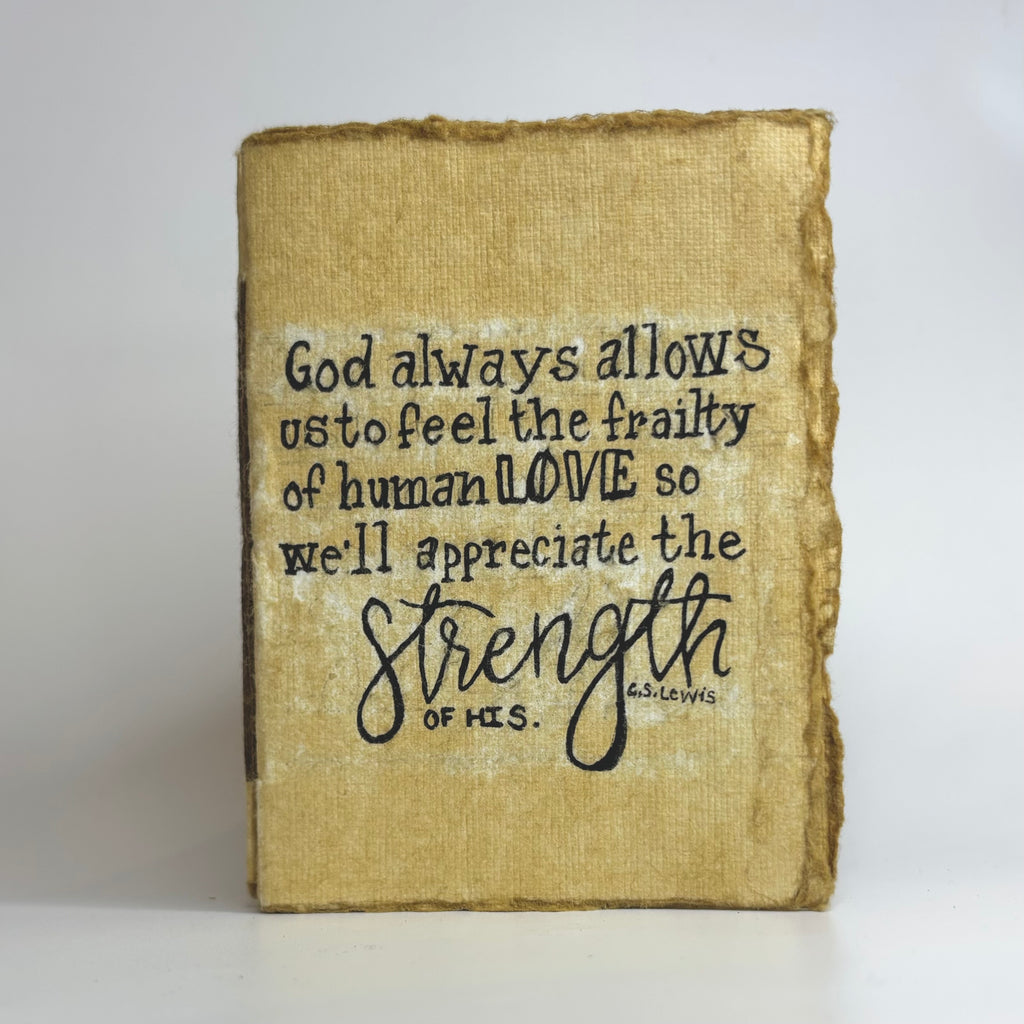 God always allows
us to feel the frailty
of human LOVE so
we'll appreciate the
strength
C.S. Lewis
OF HIS.